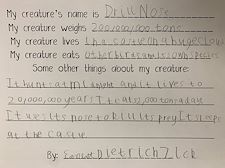 My creature's name is Drill Nose
My creature weighs 200,000,000 tons
My creature lives In a castle on a huge cloud
My creature eats other birds and its own species
Some other things about my creature:
It hunts at midnight and it lives to
20,000,000 years It eats 2,000 tons a day
It uses its nose to drill its prey It sleeps
at the castle
By: Dietrich Zich